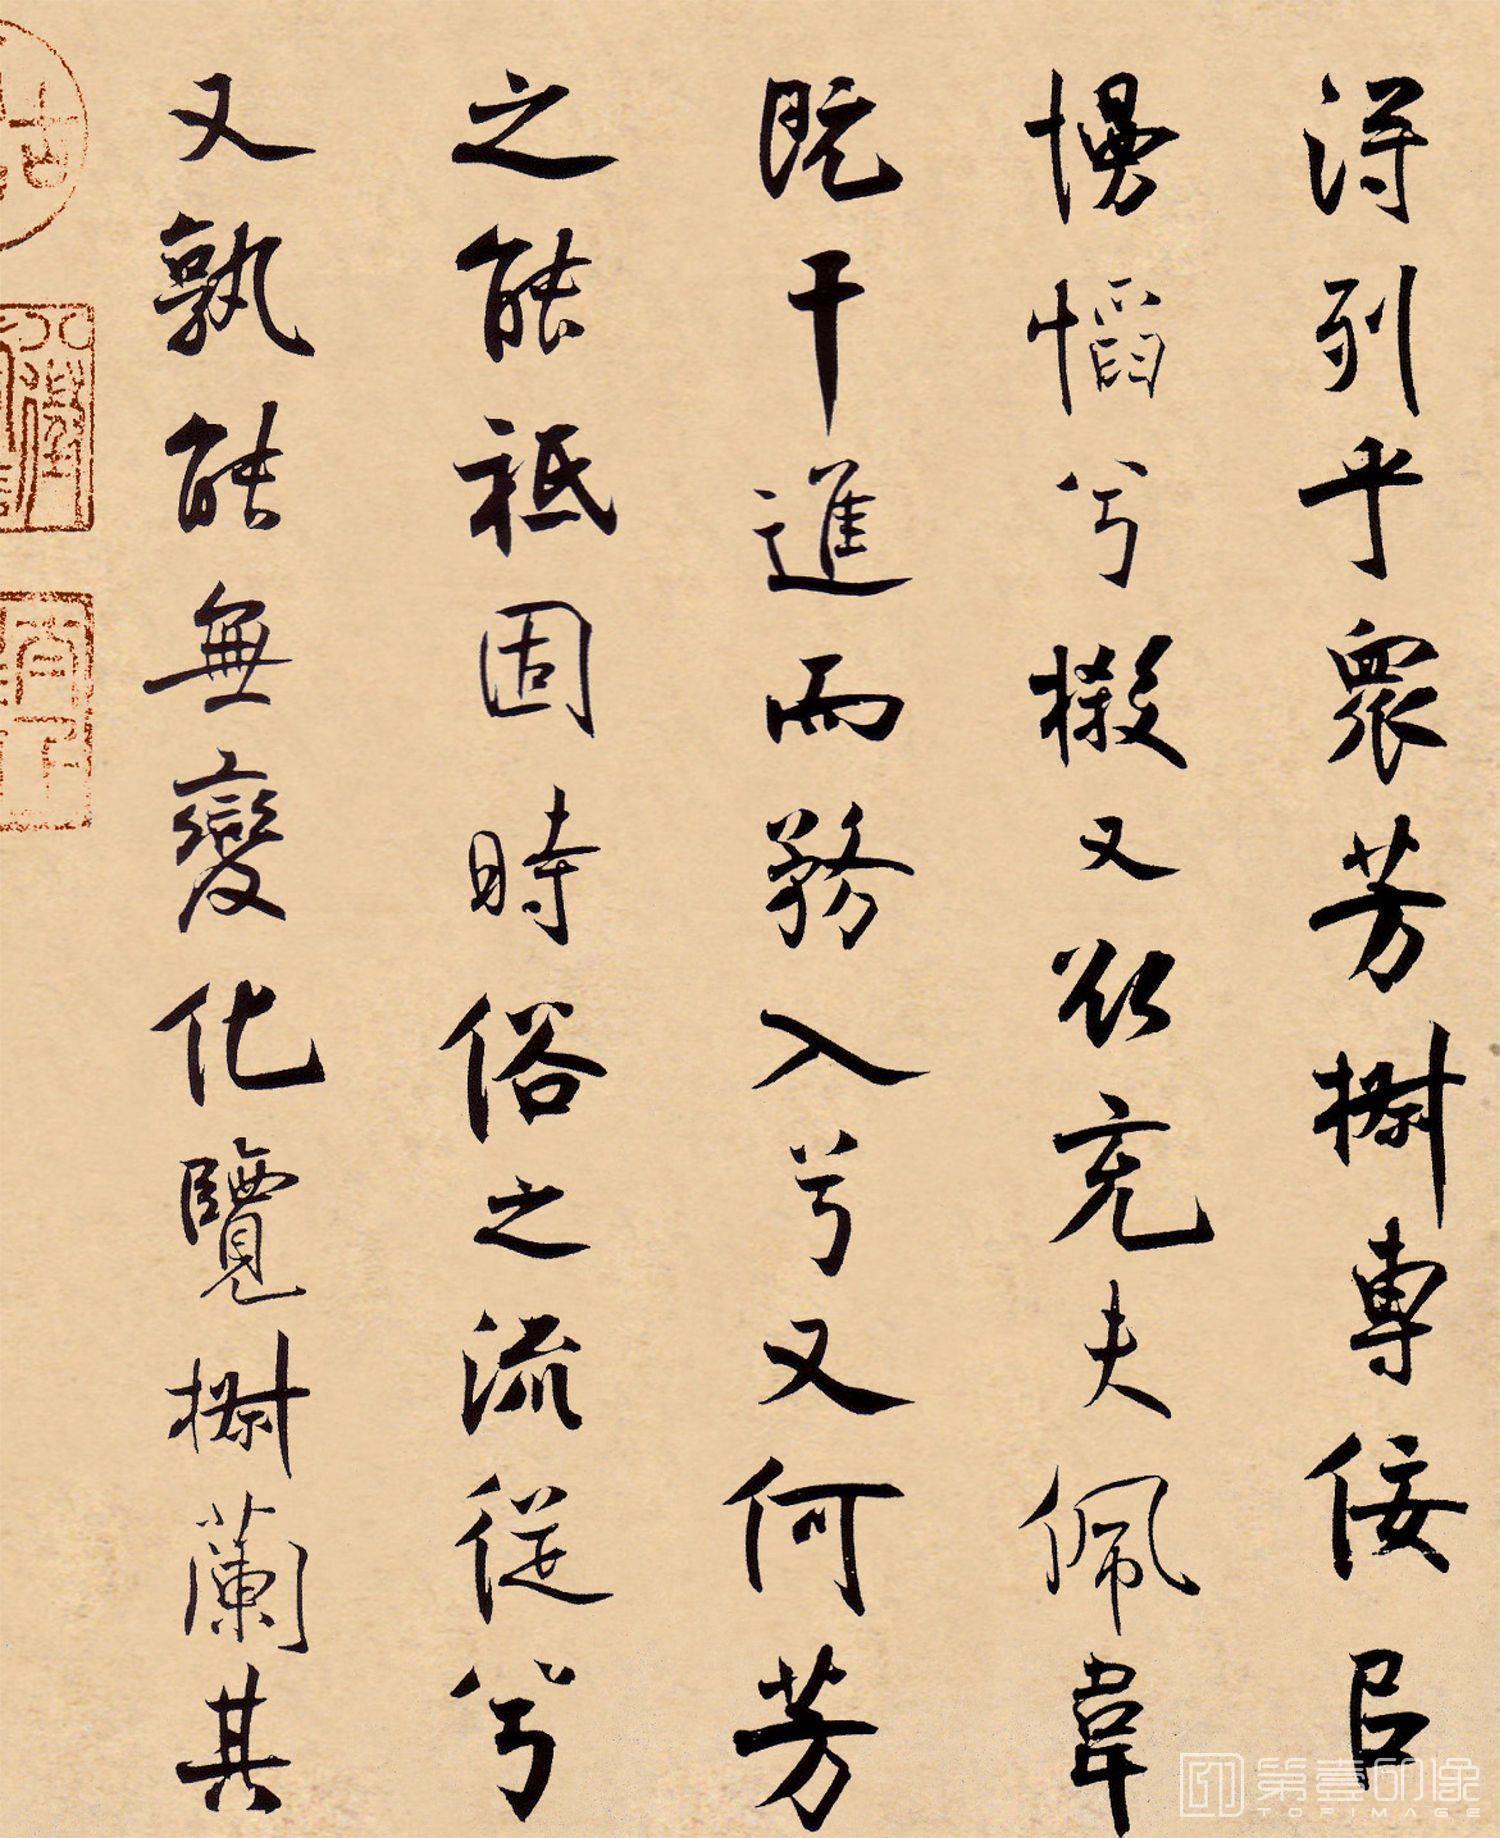 得列乎衆芳椒專佞㠯
慢慆兮樧又欲充夫佩韋
既干進而務入兮又何芳
之能祗固時俗之流從兮
又孰能無變化覽椒蘭其
第壹印像
TOPIMAGE